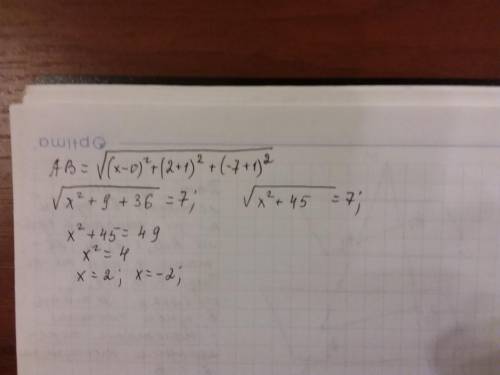 Optima
AB = √((x-0)² + (2+1)² + (-7+1)²)
√(x² + 9 + 36) = 7; √(x² + 45) = 7;
x² + 45 = 49
x² = 4
x = 2; x = -2;